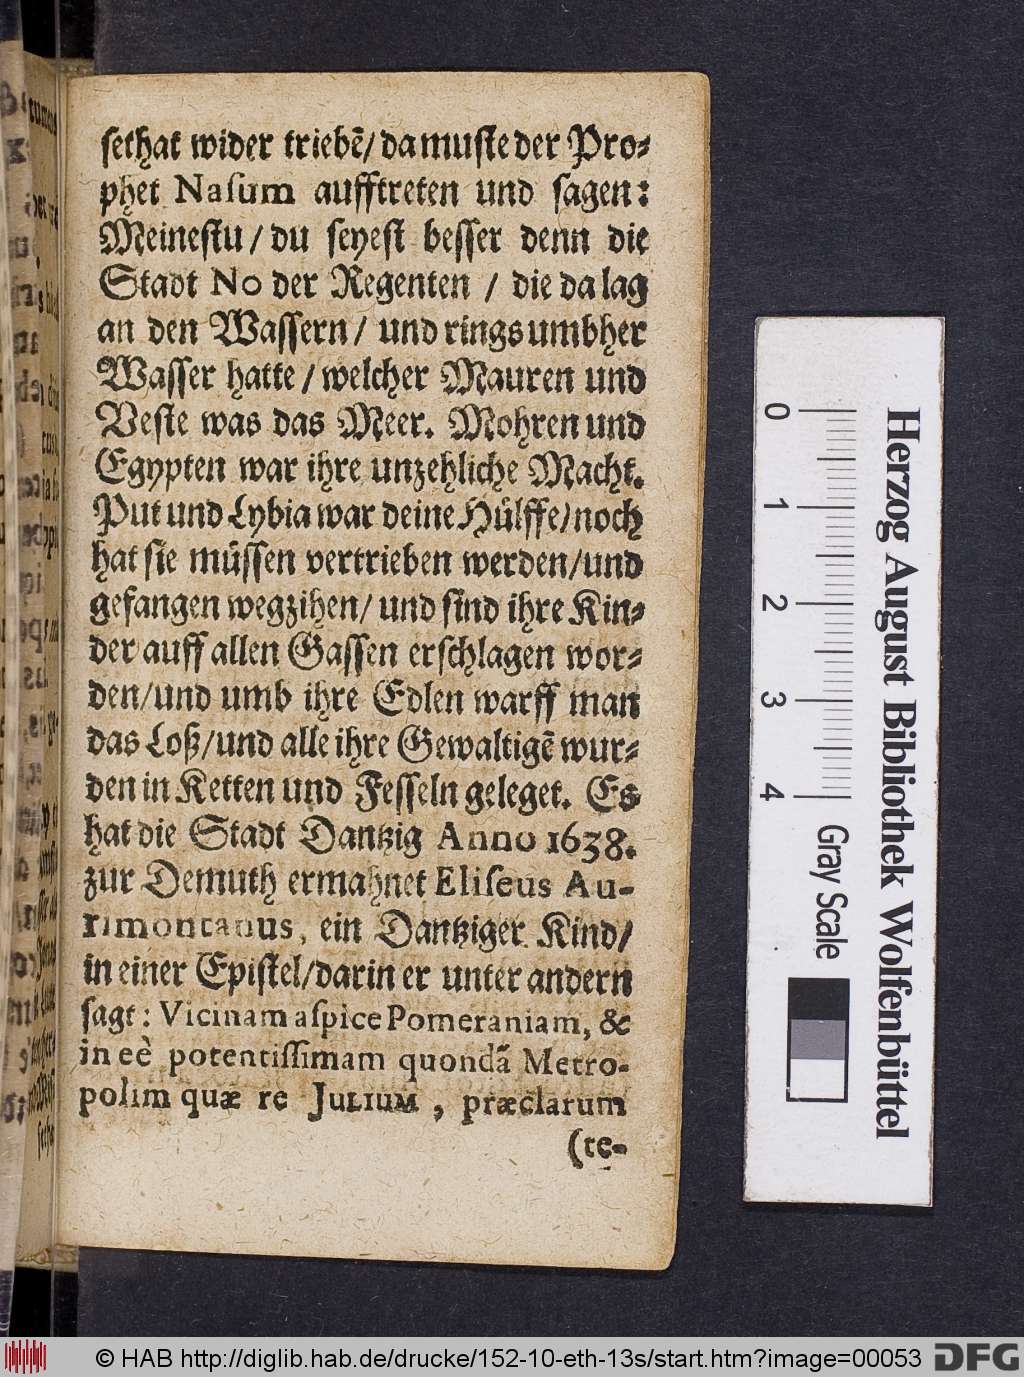 sethat wider triebē/ da muste der Pro-
phet Naſum aufftreten und sagen:
Meinestu / du seyest besser denn die
Stadt No der Regenten / die da lag
an den Wassern/ und rings umbher
Wasser hatte / welcher Mauren und
Veste was das Meer. Mohren und
Egypten war ihre unzehliche Macht.
Put und Lybia war deine Hülffe/noch
hat sie müssen vertrieben werden/und
gefangen wegzihen/ und sind ihre Kin-
der auff allen Gassen erschlagen wor-
den/und umb ihre Edlen warff man
das Loß/und alle ihre Gewaltigē wur-
den in Ketten und Fesseln geleget. Es
hat die Stadt Dantzig Anno 1638.
zur Demuth ermahnet Eliſeus Au-
rimontanus, ein Dantziger Kind/
in einer Epistel/darin er unter andern
sagt: Vicinam aſpice Pomeraniam, &
in eè potentiſſimam quondā Metro-
polim quæ re JULIUM, præclarum
(re-
Herzog August Bibliothek Wolfenbüttel
0 1 2 3 4 Gray Scale
© HAB http://diglib.hab.de/drucke/152-10-eth-13s/start.htm?image=00053
DFG